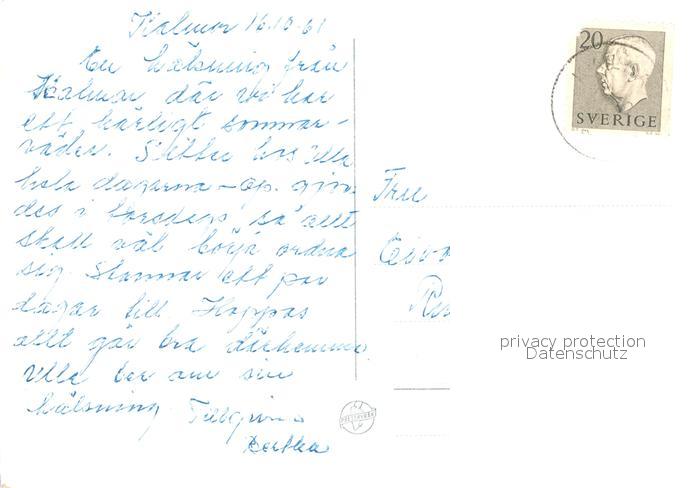 Kalmar 16.10.61
En hälsning från
Kalmar där vi har
ett härligt sommar-
väder. Sitter hos Ulla
hela dagarna – op. gjor-
des i torsdags, så allt
skall väl börja ordna
sig. Stannar ett par
dagar till. Hoppas
allt går bra därhemma.
Ulla ber om sin
hälsning.
Bertha
20
SVERIGE
Fru
privacy protection
Datenschutz